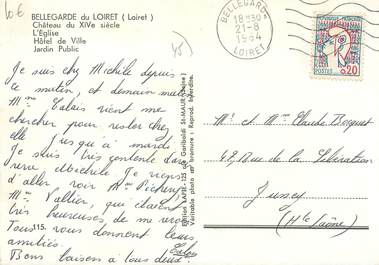 10€
BELLEGARDE du LOIRET (Loiret)
Château du XIVe siècle
L'Église
Hôtel de Ville
Jardin Public
45)
BELLEGARDE
18H30
21-8
1964
LOIRET
POSTES
0,20
Je suis chez Michèle depuis
ce matin, et demain matin
Mme Calais vient me
chercher pour rester chez
elle jusqu'à mardi
Je suis très contente d'avoir
revu Michèle. Je viens
d'aller voir Mme
Mme Vallier, qui étaient
très heureuses de me revoir
Tous vous donnent leurs
amitiés.
Bons baisers à tous deux.
115.
Edition LAPIE - 125 rue Garibaldi St-MAUR (Seine)
Véritable photo au bromure : Reprod. interdite.
Mr et Mme Claude Bocquet
47, Rue de la Libération
Jussey
(Hte Saône)